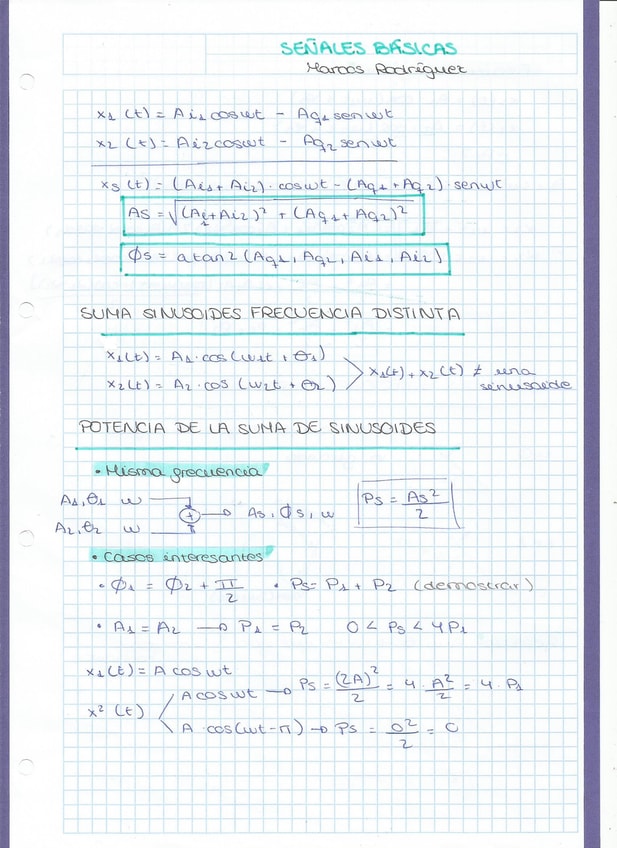 SEÑALES BÁSICAS
Marcos Rodríguez
x₁(t) = Ai₁ cosωt - Aq₁ senωt
x₂(t) = Ai₂ cosωt - Aq₂ senωt
xs(t) = (Ai₁ + Ai₂) · cosωt - (Aq₁ + Aq₂) · senωt
As = √((Ai₁ + Ai₂)² + (Aq₁ + Aq₂)²)
ϕs = atan2 (Aq₁, Aq₂, Ai₁, Ai₂)
SUMA SINUSOIDES FRECUENCIA DISTINTA
x₁(t) = A₁ · cos(ω₁t + θ₁)
x₂(t) = A₂ · cos(ω₂t + θ₂)
x₁(t) + x₂(t) ≠ una
sinusoide
POTENCIA DE LA SUMA DE SINUSOIDES
• Misma frecuencia
A₁, θ₁ ω
+ → As, ϕs, ω
Ps = As²/2
A₂, θ₂ ω
• Casos interesantes
• ϕ₁ = ϕ₂ + π/2 • Ps = P₁ + P₂ (demostrar)
• A₁ = A₂ → P₁ = P₂ 0 < Ps < 4P₁
x₁(t) = A cosωt
A cosωt → Ps = (2A)²/2 = 4 · A²/2 = 4 · P₁
x²(t)
A · cos(ωt - π) → Ps = 0²/2 = 0